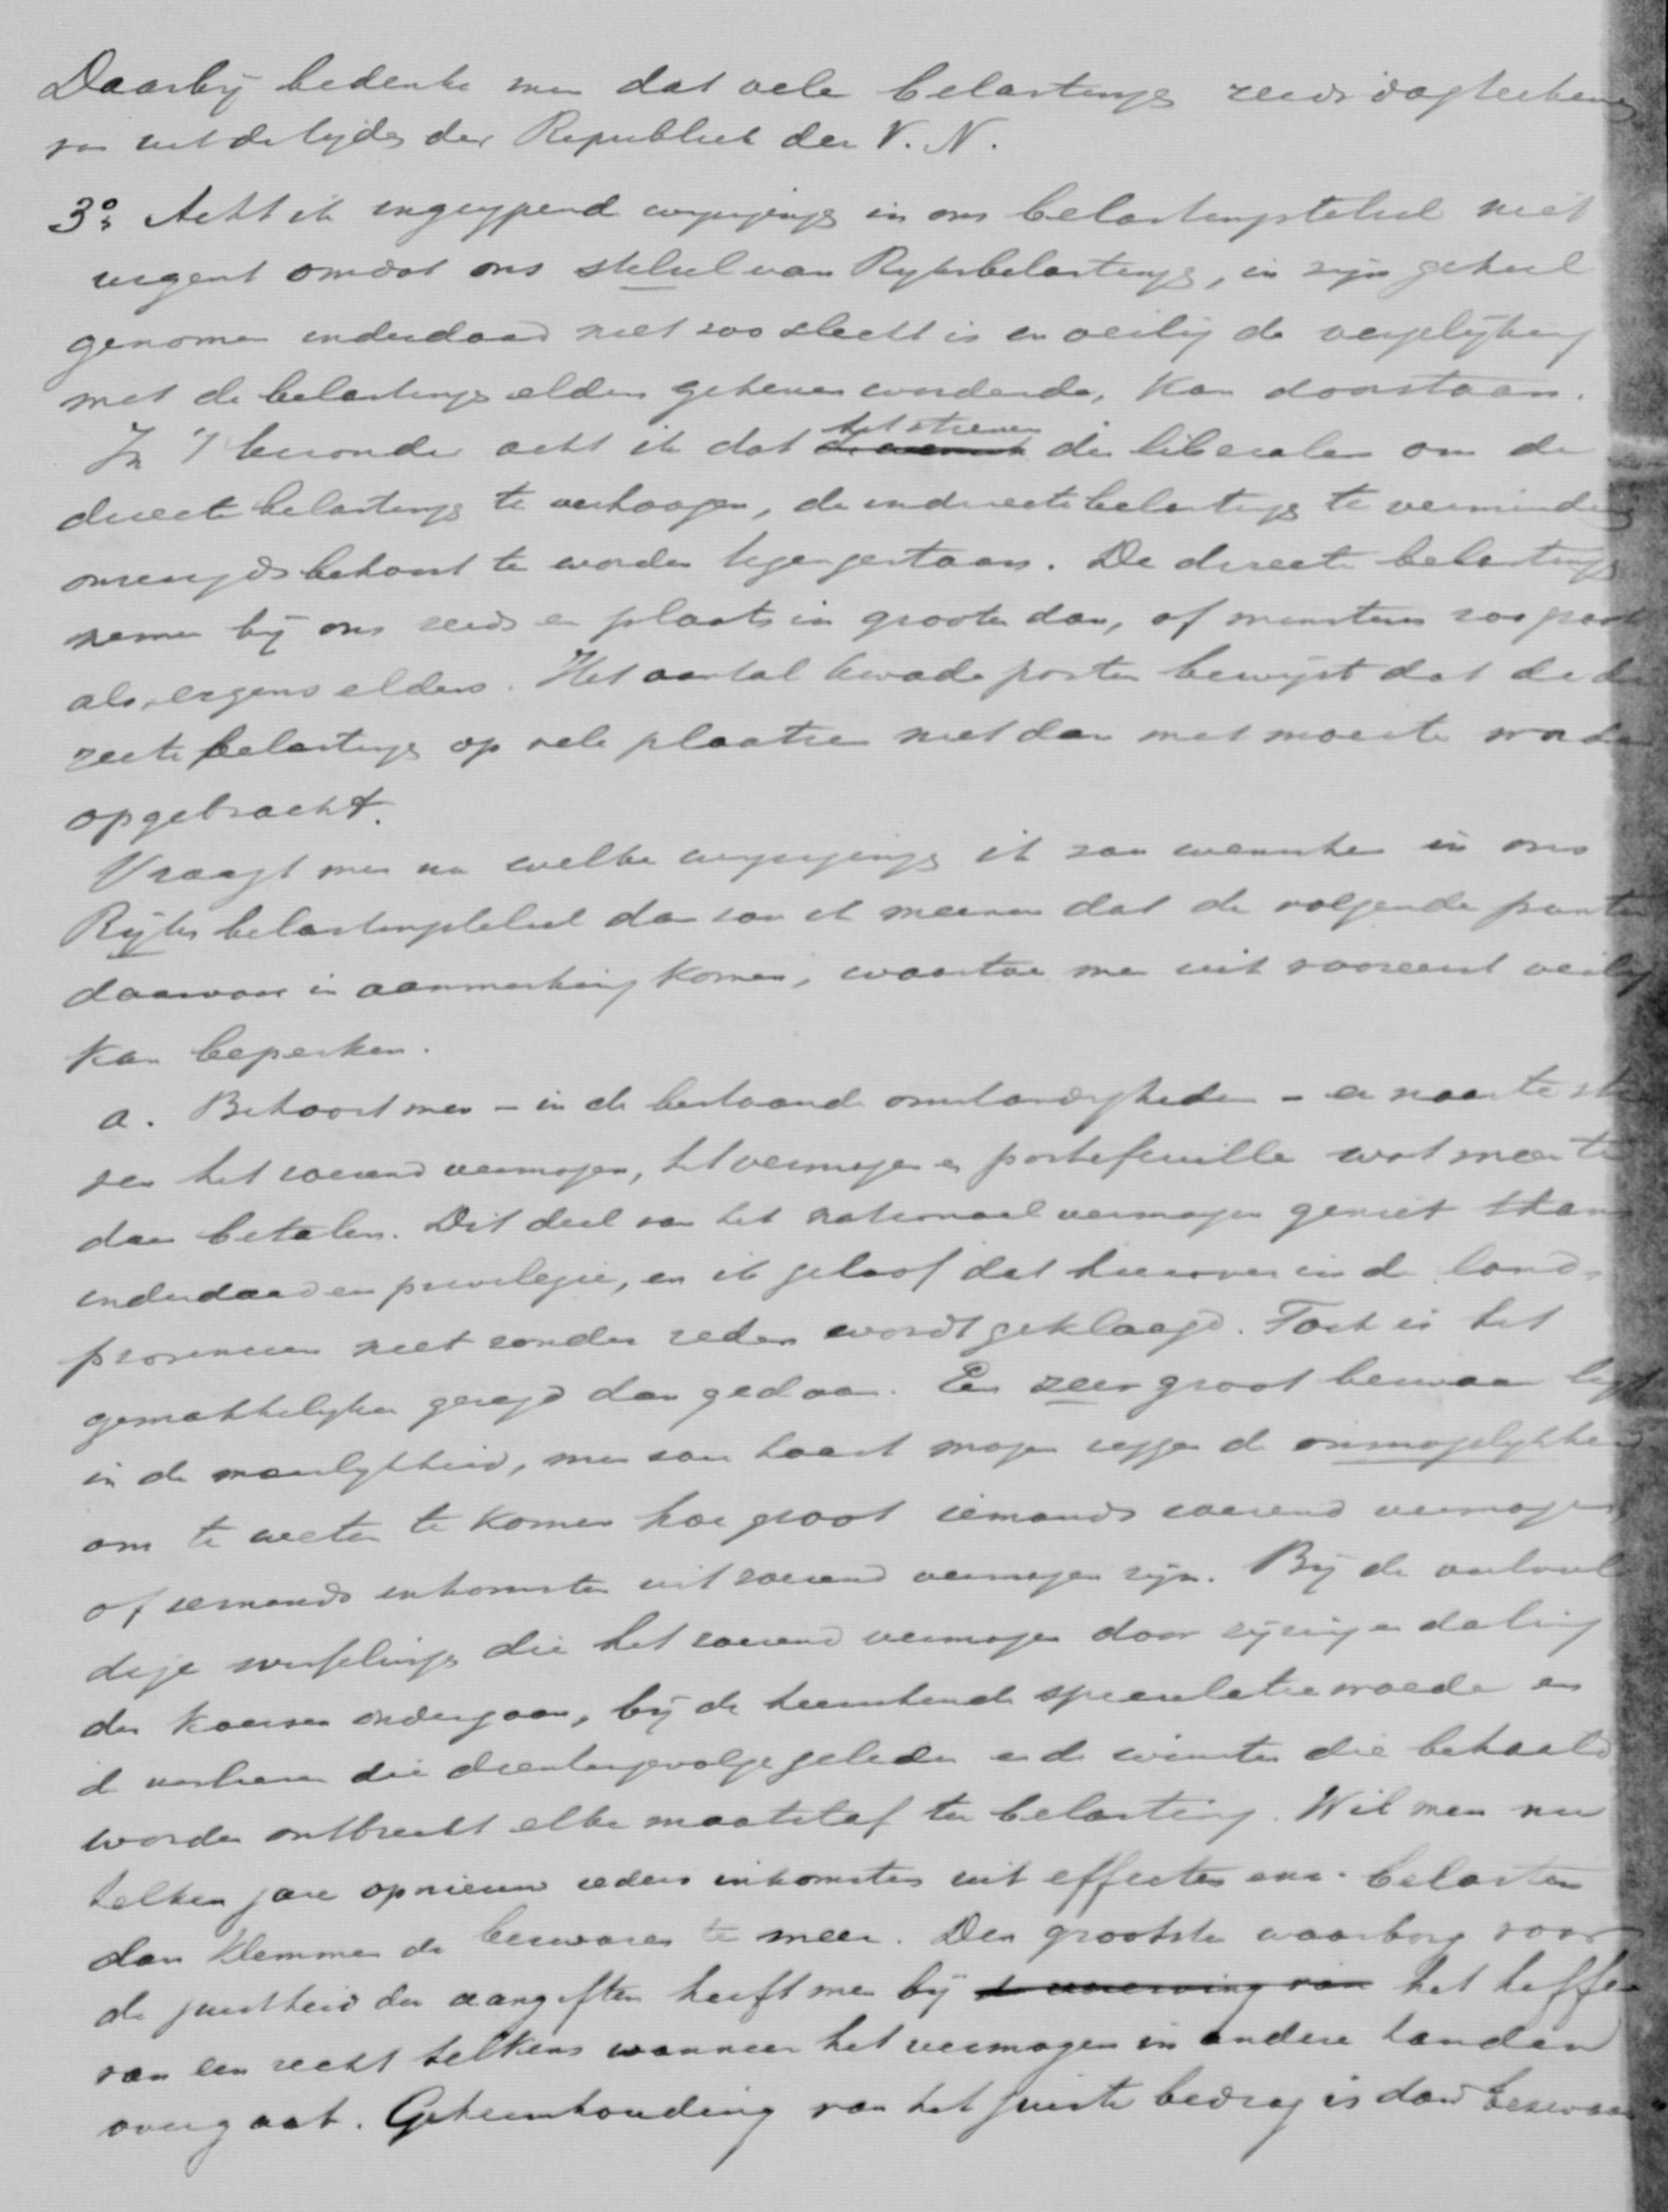 Daarbij bedenke men dat vele belastingen reeds dagteekenen
van uit de tijden der Republiek der V. N.
3o. Acht ik ingrijpend wijzigingen in ons belastingstelsel niet
urgent omdat ons stelsel van Rijksbelastingen, in zijn geheel
genomen inderdaad niet zoo slecht is en veilig de vergelijking
met de belastingen elders geheven wordende, kan doorstaan.
In 't bijzonder acht ik dat het streven der liberalen om de
directe belastingen te verhoogen, de indirecte belastingen te verminderen
onzerzijds behoort te worden tegengestaan. De directe belastingen
nemen bij ons reeds en plaats in grooter dan, of minstens zoo groot
als, ergens elders. Het aantal kwade posten bewijst dat de di
recte belastingen op vele plaatsen niet dan met moeite worden
opgebracht.
Vraagt men nu welke wijzigingen ik zou wenschen in ons
Rijks belastingstelsel dan zou ik meenen dat de volgende punten
daarvoor in aanmerking komen, waartoe men zich vooreerst veilig
kan beperken.
a. Behoort men - in de bestaande omstandigheden - er naar te stre
ven het roerend vermogen, het vermogen en portefeuille wat meer te
doen betalen. Dit deel van het nationaal vermogen geniet thans
inderdaad een privilegie, en ik geloof dat hierover in de land-
provincien niet zonder reden wordt geklaagd. Toch is het
gemakkelijker gezegd dan gedaan. Een zeer groot bezwaar ligt
in de moeilijkheid, men zou haast mogen zeggen de onmogelijkheid
om te weten te komen hoe groot iemands roerend vermogen
of iemands inkomsten uit roerend vermogen zijn. Bij de
wisselingen die het roerend vermogen door rijzing en daling
der koersen ondergaan, bij de heerschende speculatiewoede en
de verliezen die dientengevolge geleden en de winsten die behaald
worden ontbreekt elke maatstaf ter belasting. Wil men nu
telken jare opnieuw ieders inkomsten uit effecten enz. belasten
dan klemmen de bezwaren te meer. Den grootste waarborg voor
de juistheid der aangiften heeft men bij het heffen
van een recht telkens wanneer het vermogen in andere handen
overgaat. Geheimhouding van het juiste bedrag is dan bezwaar